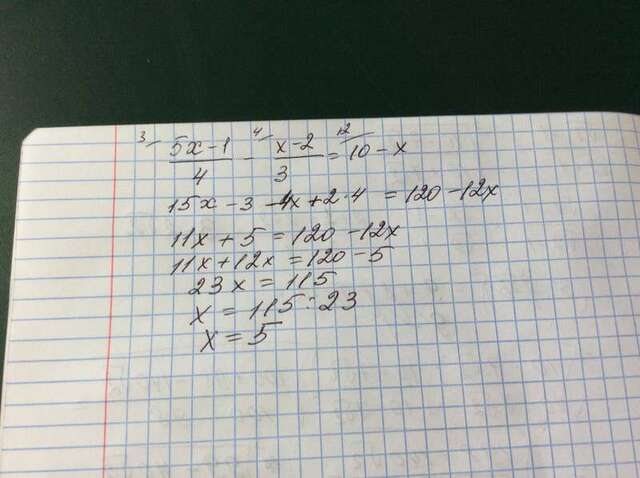 3/ (5x-1)/4 - 4/ (x-2)/3 = 12/ 10-x
15x-3-4x+2·4 = 120-12x
11x+5=120-12x
11x+12x=120-5
23x=115
x=115:23
x=5